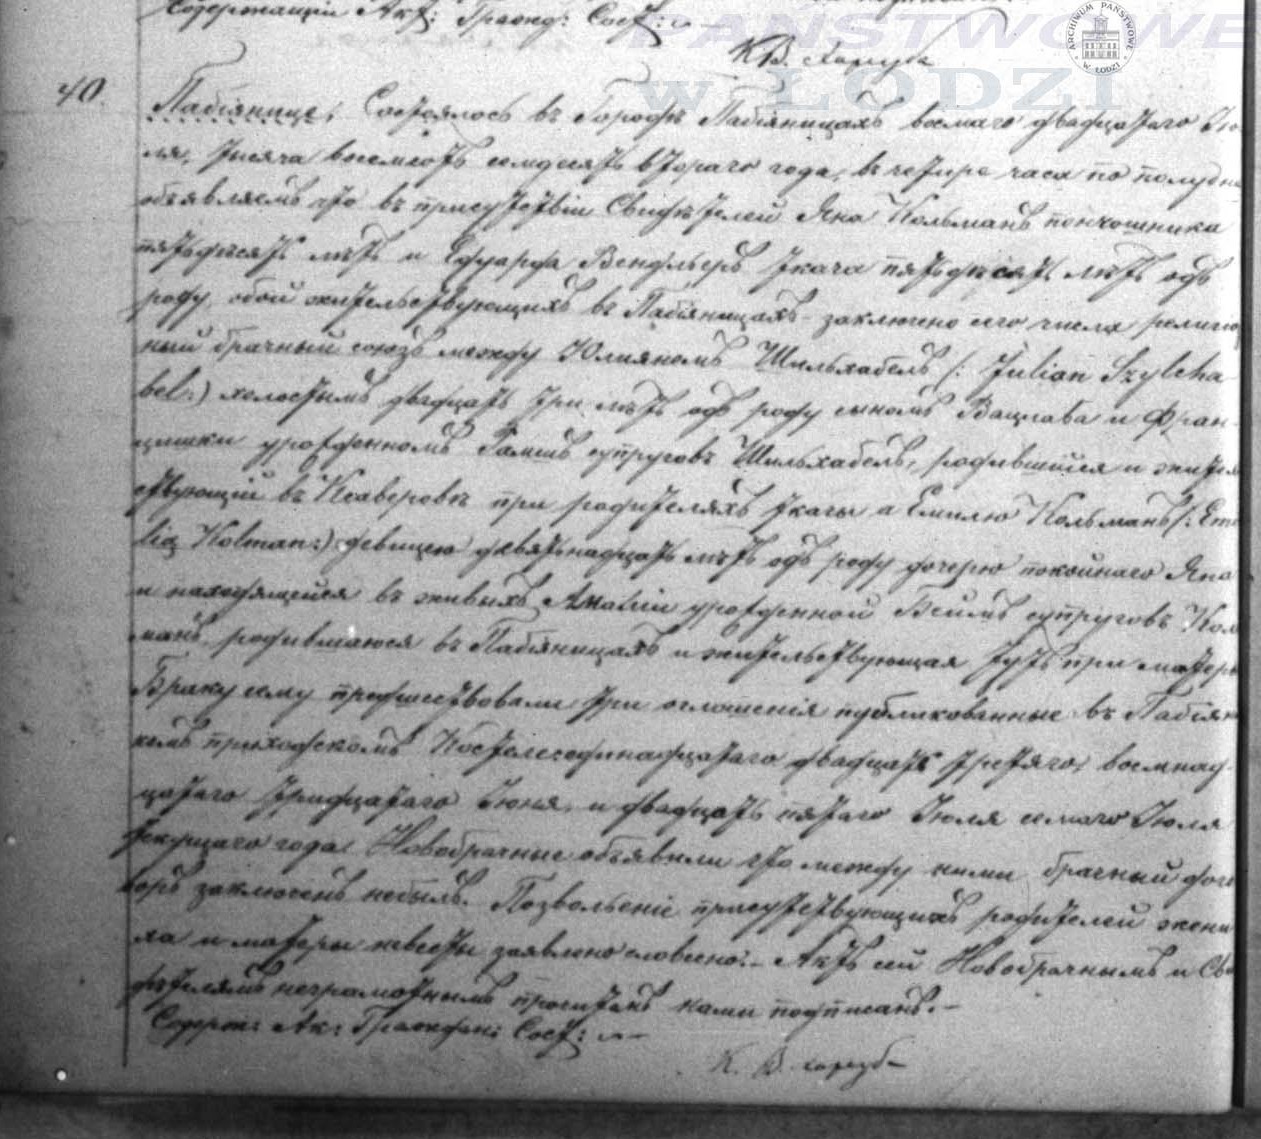 Содержащій Акт: Гражд: Сост:
PAŃSTWOWE
w ŁODZI
ARCHIWUM PAŃSTWOWE
W ŁODZI
КВ. Харуба
40.
Пабіянице, Состоялось въ Городѣ Пабіяницахъ восмаго двадцатаго Ію-
ля, тысяча восемсотъ семдесятъ втораго года, въ четыре часа по полудни
объявляемъ что въ присутствіи Свидѣтелей Яна Кольманъ пончошника
пятьдѣсятъ лѣтъ и Едуарда Вендлеръ ткача пятьдѣсятъ лѣтъ одъ
роду, обои жительствующихъ въ Пабіяницахъ заключено сего числа религіоз
ный брачный союзъ между Юліяномъ Шильхабель (: Julian Szylcha
bel:) холостымъ двадцать три лѣтъ одъ роду сыномъ Вацлава и Фран-
цишки урожденномъ Гампъ супруговъ Шильхабель, родившійся и житель
ствующій въ Ксаверовѣ при родителяхъ ткачы а Емилю Кольманъ (: Emi
lią Kolman:) девицею девятьнадцать лѣтъ одъ роду дочерю покойнаго Яна
и находящейся въ живыхъ Амаліи урожденной Беимъ супруговъ Кол
манъ, родившаюся въ Пабіяницахъ и жительствующая тутъ при матери
Браку сему предшествовали три оглошенія публикованные въ Пабіян
комъ приходскомъ Костеле одинадцатаго двадцать третяго, восемнад-
цатаго тридцатаго Іюня, и двадцать пятаго Іюля семаго Іюля
текущаго года. Новобрачные объявили что между ними брачный дого
воръ заключенъ небылъ. Позвольеніе присутствующихъ родителей жени
ха и матеры невесты заявлено словесно. Актъ сей Новобрачнымъ и Сви
дѣтелямъ неграмотнымъ прочитанъ нами подписанъ.
Содерж: Ак: Граждан: Сост:
К. В. Харуба